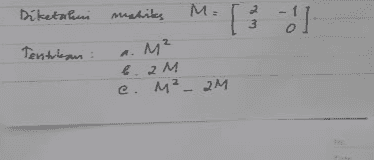 Diketahui matriks M = [ 2 -1
3 0 ].
Tentukan : a. M²
b. 2M
c. M² - 2M